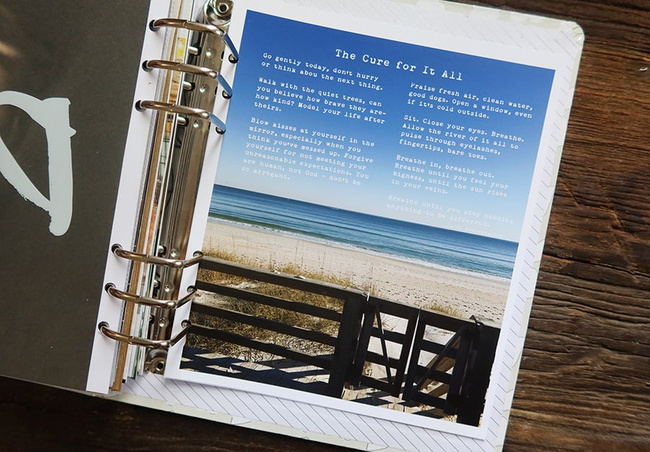 The Cure for It All
Go gently today, don't hurry
or think abou the next thing.
Walk with the quiet trees, can
you believe how brave they are—
how kind? Model your life after
theirs.
Blow kisses at yourself in the
mirror, especially when you
think you've messed up. Forgive
yourself for not meeting your
unreasonable expectations. You
are human, not God — don't be
so arrogant.
Praise fresh air, clean water,
good dogs. Open a window, even
if it's cold outside.
Sit. Close your eyes. Breathe.
Allow the river of it all to
pulse through eyelashes,
fingertips, bare toes.
Breathe in, breathe out.
Breathe until you feel your
bigness, until the sun rises
in your veins.
Breathe until you stop needing
anything to be different.